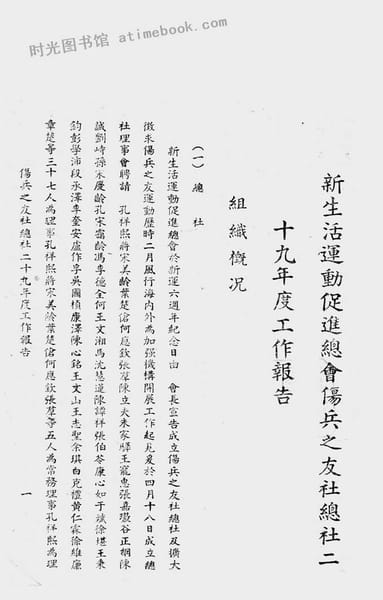 时光图书馆 atimebook.com
新生活運動促進總會傷兵之友社總社二
十九年度工作報告
組織概况
(一) 總社
新生活運動促進總會於新運六週年紀念日由 會長宣告成立傷兵之友社總社及擴大
徵求傷兵之友運動歷時二月風行海内外為加强機構開展工作起見爰於四月十八日成立總
社理事會聘請 孔祥熙蔣宋美齡葉楚傖何應欽張羣陳立夫朱家驊王寵惠張嘉璈谷正綱陳
誠劉峙孫宋慶齡孔宋靄齡馮李德全何王文湘馬沈慧蓮陳譚祥張伯苓康心如于斌徐堪王東
鈞彭學沛段承澤李奎安盧作孚吳國楨康澤陳心銘王文山王志聖余琪白克禮黃仁霖徐維廉
章楚等三十七人為理事孔祥熙蔣宋美齡葉楚傖何應欽張羣等五人為常務理事孔祥熙為理
傷兵之友社總社二十九年度工作報告 一